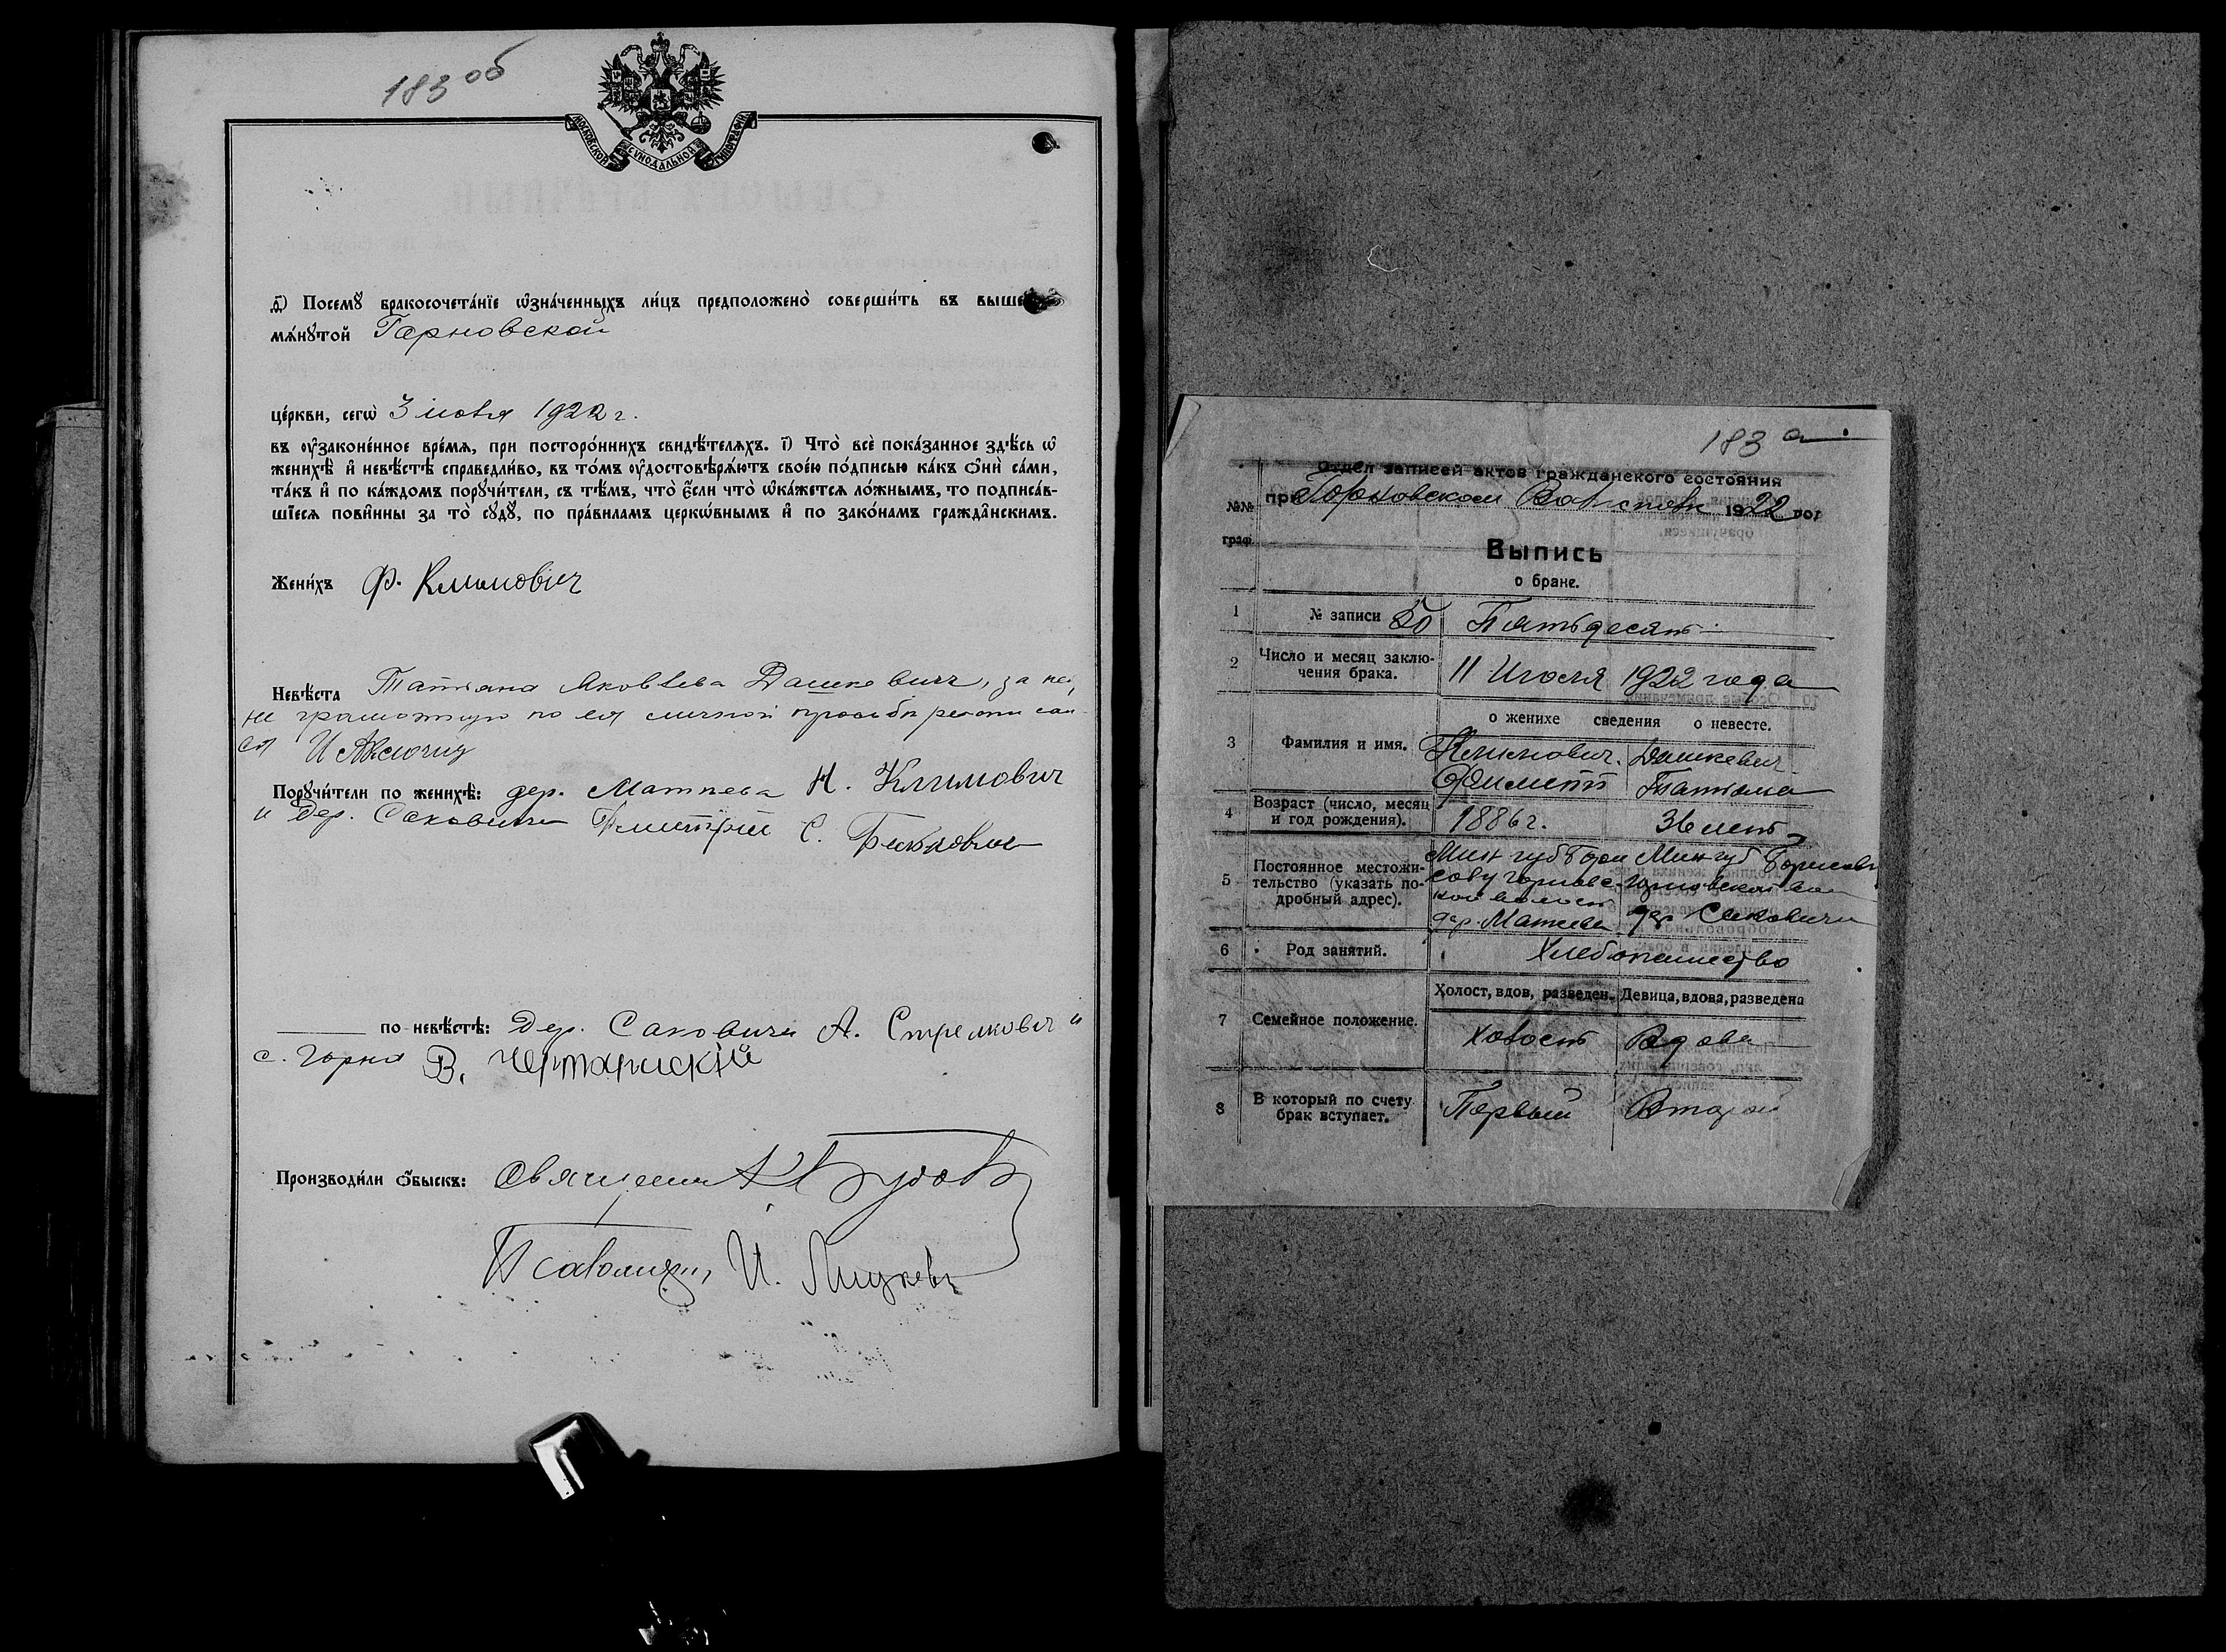 183 об
МОСКОВСКОЙ СѴНОДАЛЬНОЙ ТИПОГРАФІИ
Посемꙋ̀ бракосочета́нїе ѡ҆зна́ченныхъ ли́цъ предположено̀ соверши́ть въ выше
мѧ́нꙋтой Горновской
це́ркви, сегѡ̀ 3 июля 1922 г.
въ ᲂу҆законе́нное вре́мѧ, при посторо́ннихъ свидѣ́телѧхъ. і҃) Что̀ всѐ пока́занное здѣ́сь ѡ҆
женихѣ̀ и҆ невѣ́стѣ справедли́во, въ то́мъ ᲂу҆достовѣрѧ́ютъ свое́ю по́дписью ка́къ ѻ҆нѝ са́ми,
та́къ и҆ по ка́ждомъ порꙋчи́тели, съ тѣ́мъ, что̀ є҆́сли что̀ ѡ҆ка́жетсѧ ло́жнымъ, то подписа́в-
шїесѧ пови́нны за то̀ сꙋдꙋ̀, по пра́виламъ церкѡ́внымъ и҆ по зако́намъ гражда̑нскимъ.
Жени́хъ Ф. Климовіч
Невѣ́ста Татьяна Яковлева Дашкевич, за нею
не грамотную по ея личной просьбе
И Аксючиц
Порꙋчи́тели по женихѣ̀: дер. Маткева Н. Климович
и дер. Саковичи Дмитрий С.
по невѣ́стѣ: Дер. Саковичи А. Стрелкович и
с. Горно В.
Производи́ли ѻ҆́быскъ: Священник
Псаломщик И.
183 а
Отдел записей актов гражданского состояния
при Горновском Волисполк 1922 год
№№ граф.
Выпись
о браке.
1 № записи 50 Пятьдесят
2 Число и месяц заклю-
чения брака. 11 Июля 1922 года
о женихе сведения о невесте.
3 Фамилия и имя. Климович Дашкевич
Филипп Татьяна
4 Возраст (число, месяц
и год рождения). 1886 г. 36 лет
5 Постоянное местожи-
тельство (указать по-
дробный адрес).
Мин губ Бори Мин губ Борисовск
сову Горновс- Горновской вол
кой волости
дер. Маткева дер Саковичи
6 Род занятий. Хлебопашество
Холост, вдов, разведен. Девица, вдова, разведена
7 Семейное положение. Холост Вдова
8 В который по счету
брак вступает. Первый Второй